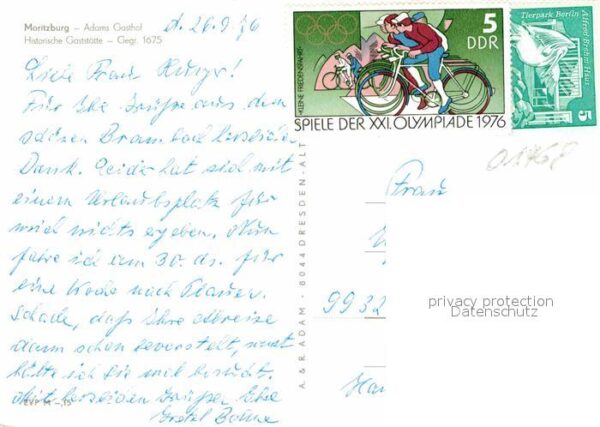 Moritzburg – Adams Gasthof
Historische Gaststätte – Gegr. 1675
d. 26.9.76
Liebe Frau
Für Ihre Grüße aus dem
schönen Bad herzlichen
Dank. Leider hat sich mit
einem Urlaubsplatz für
mich nichts ergeben. Nun
fahre ich am 30. ds. für
eine Woche nach Plauen.
Schade, daß Ihre Abreise
dann schon bevorsteht, sonst
hätte ich Sie mal besucht.
Mit herzlichen Grüßen Ihre
Gretel
EVP M –,15
A. & R. ADAM · 8044 DRESDEN-ALT
KLEINE FRIEDENSFAHRT
5
DDR
SPIELE DER XXI. OLYMPIADE 1976
Tierpark Berlin
Alfred-Brehm-Haus
5
01768
Frau
9932
privacy protection
Datenschutz